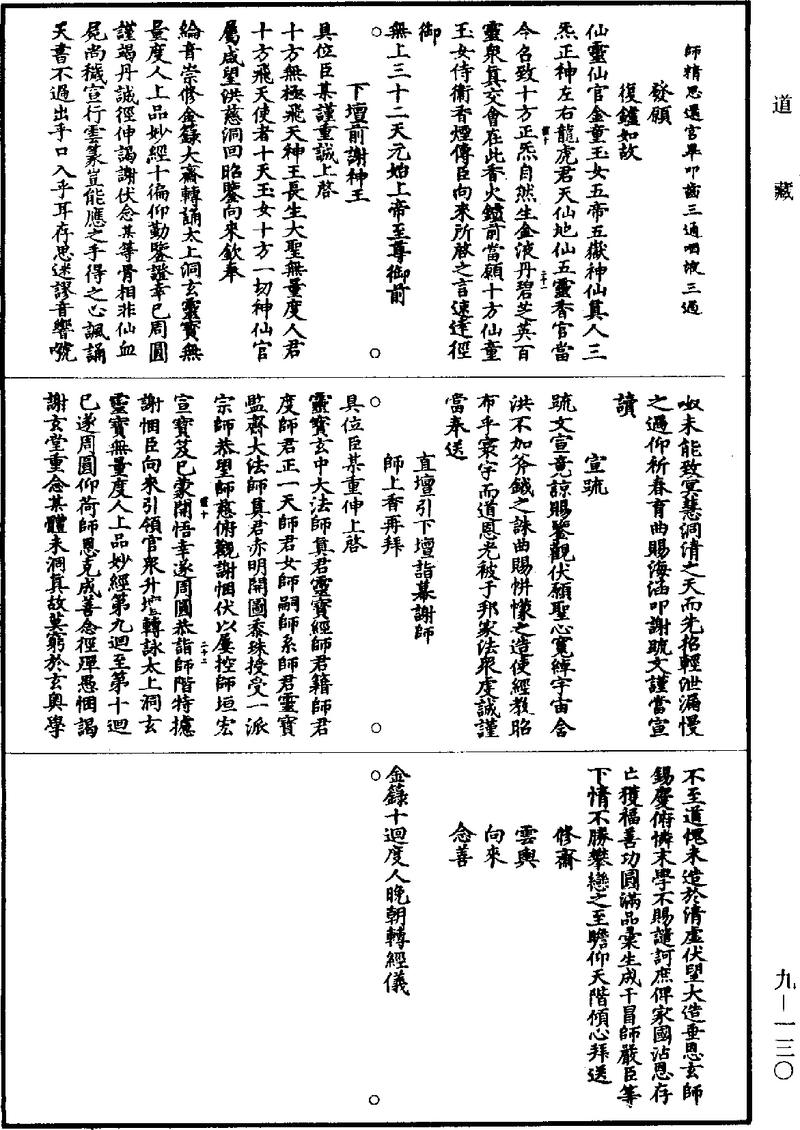 道藏
九—一三〇
師精思還官畢叩齒三通咽液三過
發願
復鑪如故
仙靈仙官金童玉女五帝五嶽神仙真人三
炁正神左右龍虎君天仙地仙五靈香官當
今名致十方正炁自然生金液丹碧芝英百
靈衆真交會在此香火鑪前當願十方仙童
玉女侍衛香煙傳臣向來所啓之言速達徑
御
無上三十二天元始上帝至尊御前
下壇前謝神王
具位臣某謹重誠上啓
十方無極飛天神王長生大聖無量度人君
十方飛天使者十天玉女十方一切神仙官
屬咸望洪慈洞回昭鑒向來欽奉
綸音崇修金籙大齋轉誦太上洞玄靈寶無
量度人上品妙經十徧仰勤鑒證幸已周圓
謹竭丹誠徑伸謁謝伏念某等骨相非仙血
屍尚穢宣行雲篆豈能應之手得之心諷誦
天書不過出乎口入乎耳存思迷謬音響喉
呶未能致冥慧洞清之天而先招輕泄漏慢
之過仰祈春育曲賜海涵叩謝疏文謹當宣
讀
宣疏
疏文宣竟諒賜鑒觀伏願聖心寬綽宇宙含
洪不加斧鉞之誅曲賜帡幪之造使經教昭
布乎寰宇而道恩光被于邦家法衆虔誠謹
當奉送
直壇引下壇詣幕謝師
師上香再拜
具位臣某重伸上啓
靈寶玄中大法師真君靈寶經師君籍師君
度師君正一天師君女師嗣師系師君靈寶
監齋大法師真君赤明開圖黍珠授受一派
宗師恭望師慈俯觀謝悃伏以屢控師垣宏
宣寶笈已蒙開悟幸遂周圓恭詣師階特攄
謝悃臣向來引領官衆升壇轉詠太上洞玄
靈寶無量度人上品妙經第九迴至第十迴
已遂周圓仰荷師恩克成善念徑殫愚悃謁
謝玄堂重念某體未洞真故莫窮於玄奧學
不至道愧未造於清虛伏望大造垂恩玄師
錫慶俯憐末學不賜譴訶庶俾家國沾恩存
亡獲福善功圓滿品彙生成干冒師嚴臣等
下情不勝攀戀之至瞻仰天階傾心拜送
修齋
雲輿
向來
念善
金籙十迴度人晚朝轉經儀